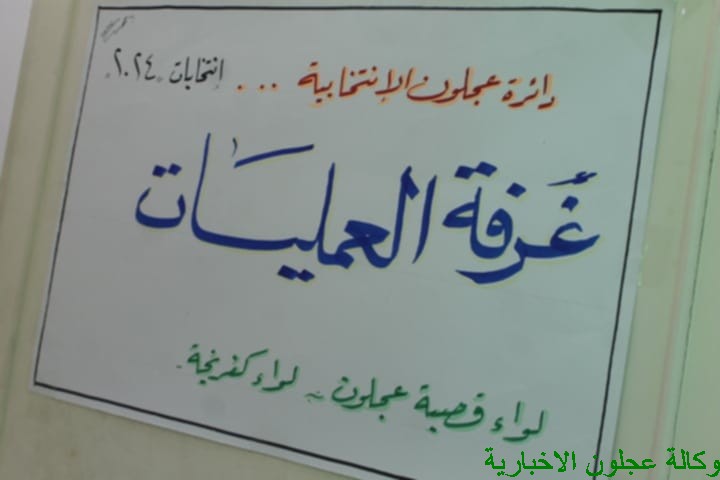 دائرة عجلون الإنتخابية ... إنتخابات "٢٠٢٤"
غُرفة العمليات
لواء قصبة عجلون ~ لواء كفرنجة.
وكالة عجلون الاخبارية